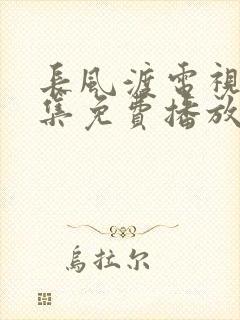 長風渡電視
集免費播放
烏拉尔